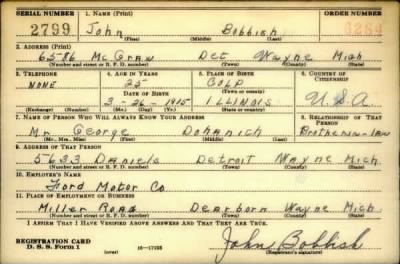 SERIAL NUMBER 1. NAME (Print) ORDER NUMBER
2799 John Bobbish
(First) (Middle) (Last)
2. ADDRESS (Print)
6586 McGraw Det Wayne Mich
(Number and street or R. F. D. number) (Town) (County) (State)
3. TELEPHONE 4. AGE IN YEARS 5. PLACE OF BIRTH 6. COUNTRY OF CITIZENSHIP
NONE 25 COLP
DATE OF BIRTH (Town or county)
3-26-1915 ILLINOIS U.S.A
(Exchange) (Number) (Mo.) (Day) (Yr.) (State or country)
7. NAME OF PERSON WHO WILL ALWAYS KNOW YOUR ADDRESS 8. RELATIONSHIP OF THAT PERSON
Mr. George Dohanich Brother-in-law
(Mr., Mrs., Miss) (First) (Middle) (Last)
9. ADDRESS OF THAT PERSON
5633 Daniels Detroit Wayne Mich.
(Number and street or R. F. D. number) (Town) (County) (State)
10. EMPLOYER'S NAME
Ford Motor Co
11. PLACE OF EMPLOYMENT OR BUSINESS
Miller Road Dearborn Wayne Mich.
(Number and street or R. F. D. number) (Town) (County) (State)
I AFFIRM THAT I HAVE VERIFIED ABOVE ANSWERS AND THAT THEY ARE TRUE.
REGISTRATION CARD
D. S. S. Form 1 (over) 16-17105 John Bobbish
(Registrant's signature)